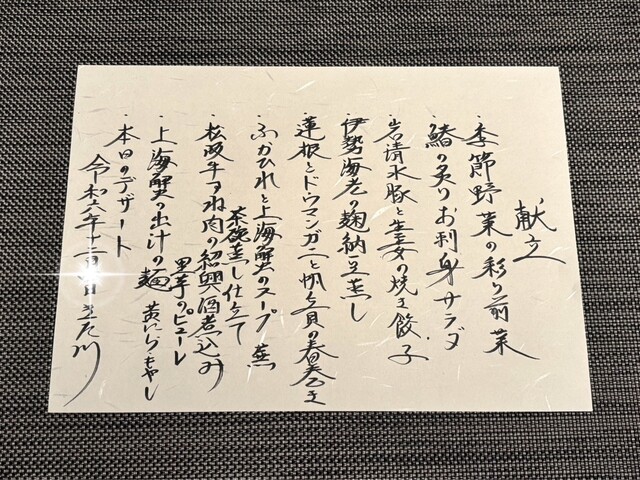 献立
・季節野菜の彩り前菜
・鰆の炙りお刺身サラダ
・岩清水豚と生姜の焼き餃子
・伊勢海老の麹納豆蒸し
・蓮根とドウマンガニと帆立貝の春巻き
・ふかひれと上海蟹のスープ 蕪
茶碗蒸し仕立て
・松阪牛すね肉の紹興酒煮込み
里芋のピューレ
・上海蟹の出汁の麺 黄にら・もやし
・本日のデザート
令和六年